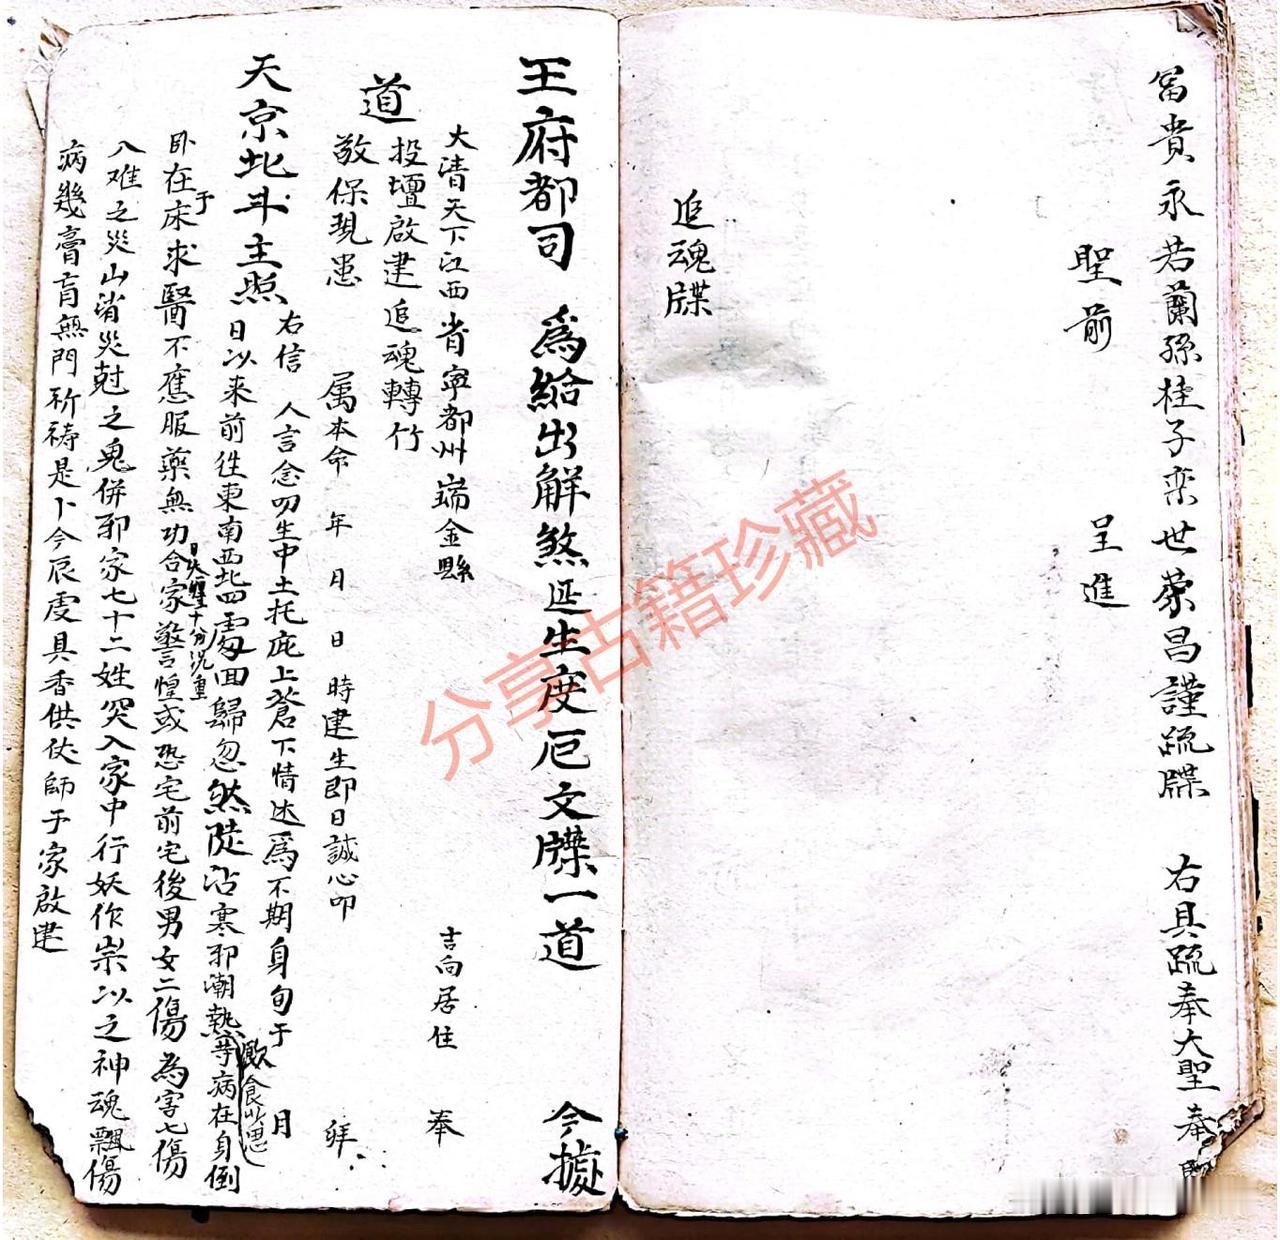 冨貴永若蘭孫桂子栾世荣昌謹疏牒 右具疏奉大聖奉
聖前 呈進
追魂牒
王府都司 為給出解煞延生度厄文牒一道 今㨿
大清天下江西省寧都州瑞金縣 吉向居住 奉
道
投壇啟建追魂轉竹
敬保現患 属本命 年 月 日 時建生即日誠心叩 拜
右信 人言念叨生中土托庇上蒼下情达為不期身旬于 月
天京北斗主照
日以来前往東南西北四處回歸忽然陡沾寒邪潮熱等病在身倒
飲食少思
卧在于床求醫不應服藥無功合家驚惶或恐宅前宅後男女二傷為害七傷
日夜十分沉重
八难之災山消災尅之鬼併邪家七十二姓突入家中行妖作祟以之神魂飄傷
病幾膏肓無門祈祷是卜今辰虔具香供伏師于家啟建
分享古籍珍藏